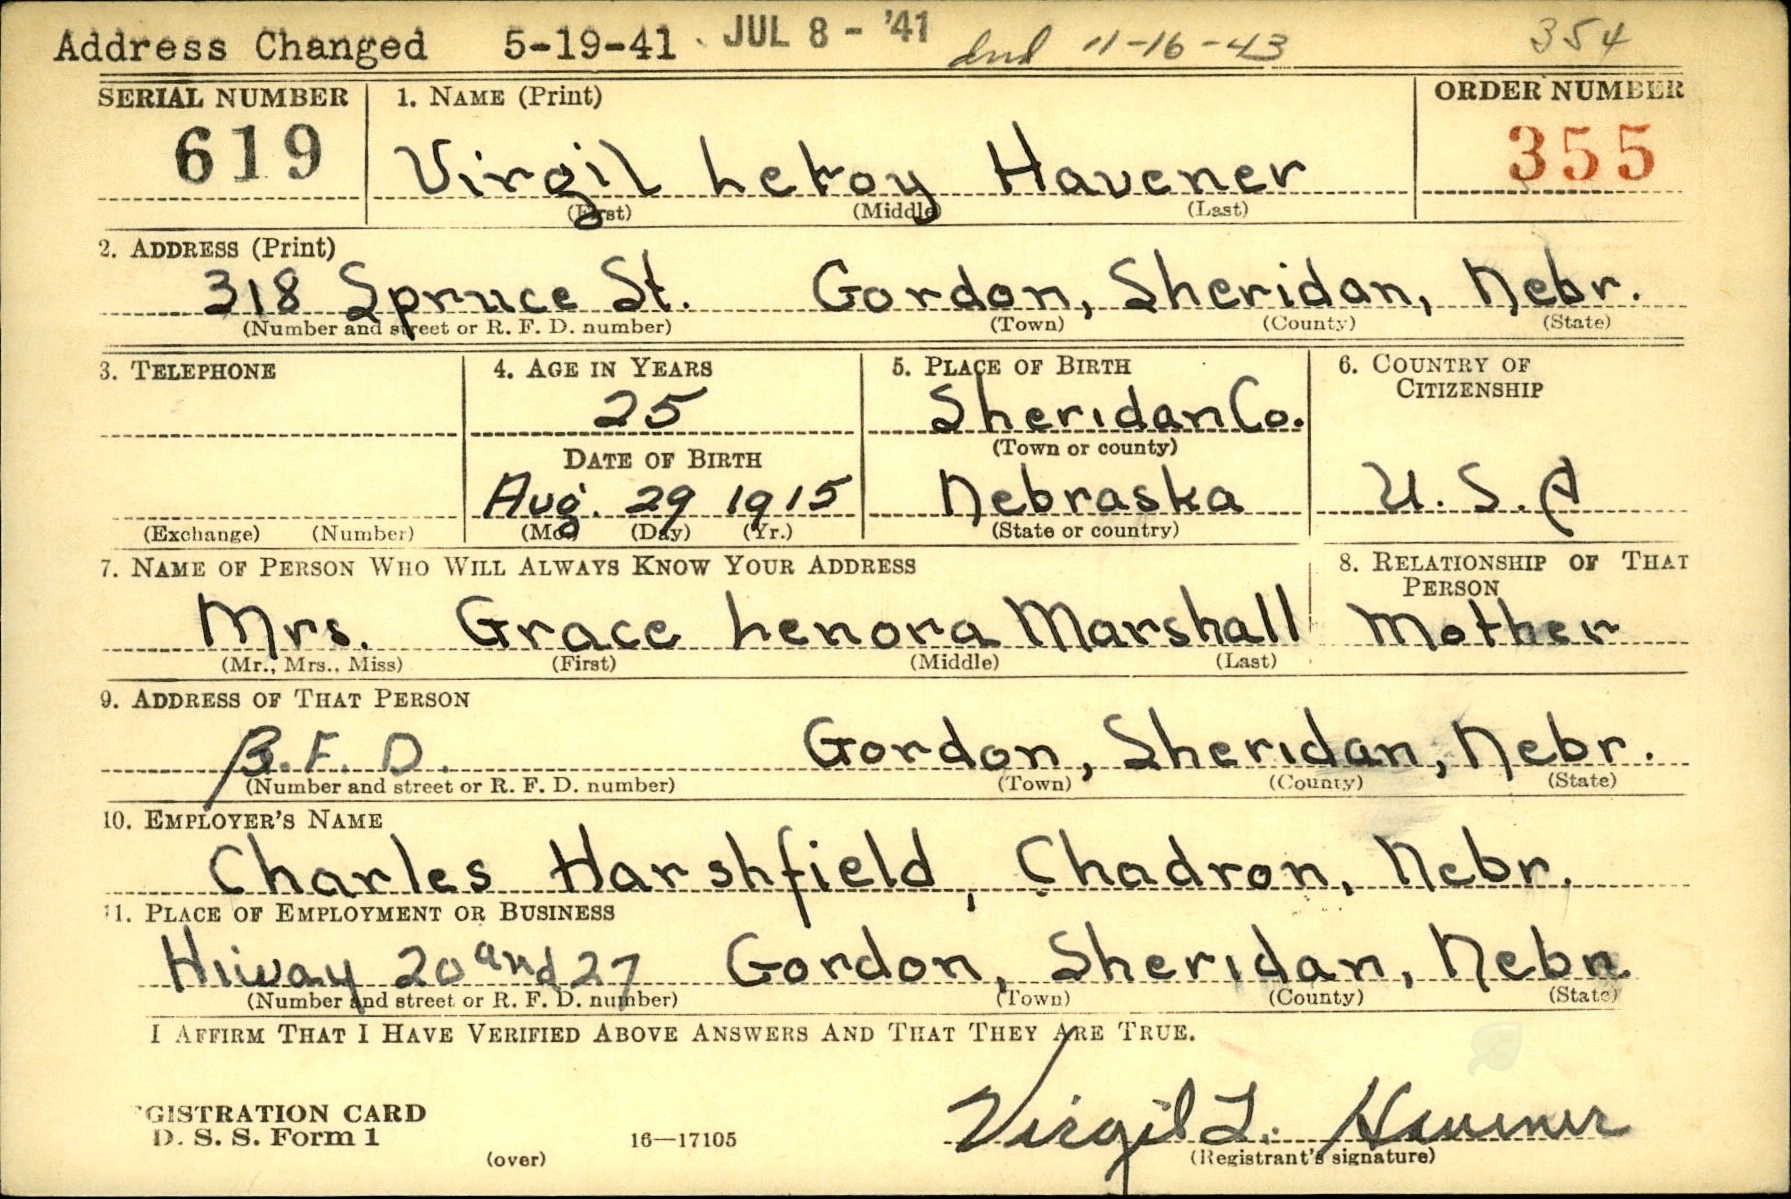 Address Changed 5-19-41 JUL 8 - '41 11-16-43 354
SERIAL NUMBER 1. NAME (Print) ORDER NUMBER
619 Virgil LeRoy Havener 355
(First) (Middle) (Last)
2. ADDRESS (Print)
318 Spruce St. Gordon, Sheridan, Nebr.
(Number and street or R. F. D. number) (Town) (County) (State)
3. TELEPHONE 4. AGE IN YEARS 5. PLACE OF BIRTH 6. COUNTRY OF CITIZENSHIP
25 Sheridan Co.
DATE OF BIRTH (Town or county)
Aug. 29 1915 Nebraska U. S. A
(Exchange) (Number) (Mo.) (Day) (Yr.) (State or country)
7. NAME OF PERSON WHO WILL ALWAYS KNOW YOUR ADDRESS 8. RELATIONSHIP OF THAT PERSON
Mrs. Grace Lenora Marshall Mother
(Mr., Mrs., Miss) (First) (Middle) (Last)
9. ADDRESS OF THAT PERSON
R. F. D. Gordon, Sheridan, Nebr.
(Number and street or R. F. D. number) (Town) (County) (State)
10. EMPLOYER'S NAME
Charles Harshfield, Chadron, Nebr.
11. PLACE OF EMPLOYMENT OR BUSINESS
Hiway 20 and 27 Gordon, Sheridan, Nebr
(Number and street or R. F. D. number) (Town) (County) (State)
I AFFIRM THAT I HAVE VERIFIED ABOVE ANSWERS AND THAT THEY ARE TRUE.
GISTRATION CARD
D. S. S. Form 1 16—17105 Virgil L. Havener
(over) (Registrant's signature)